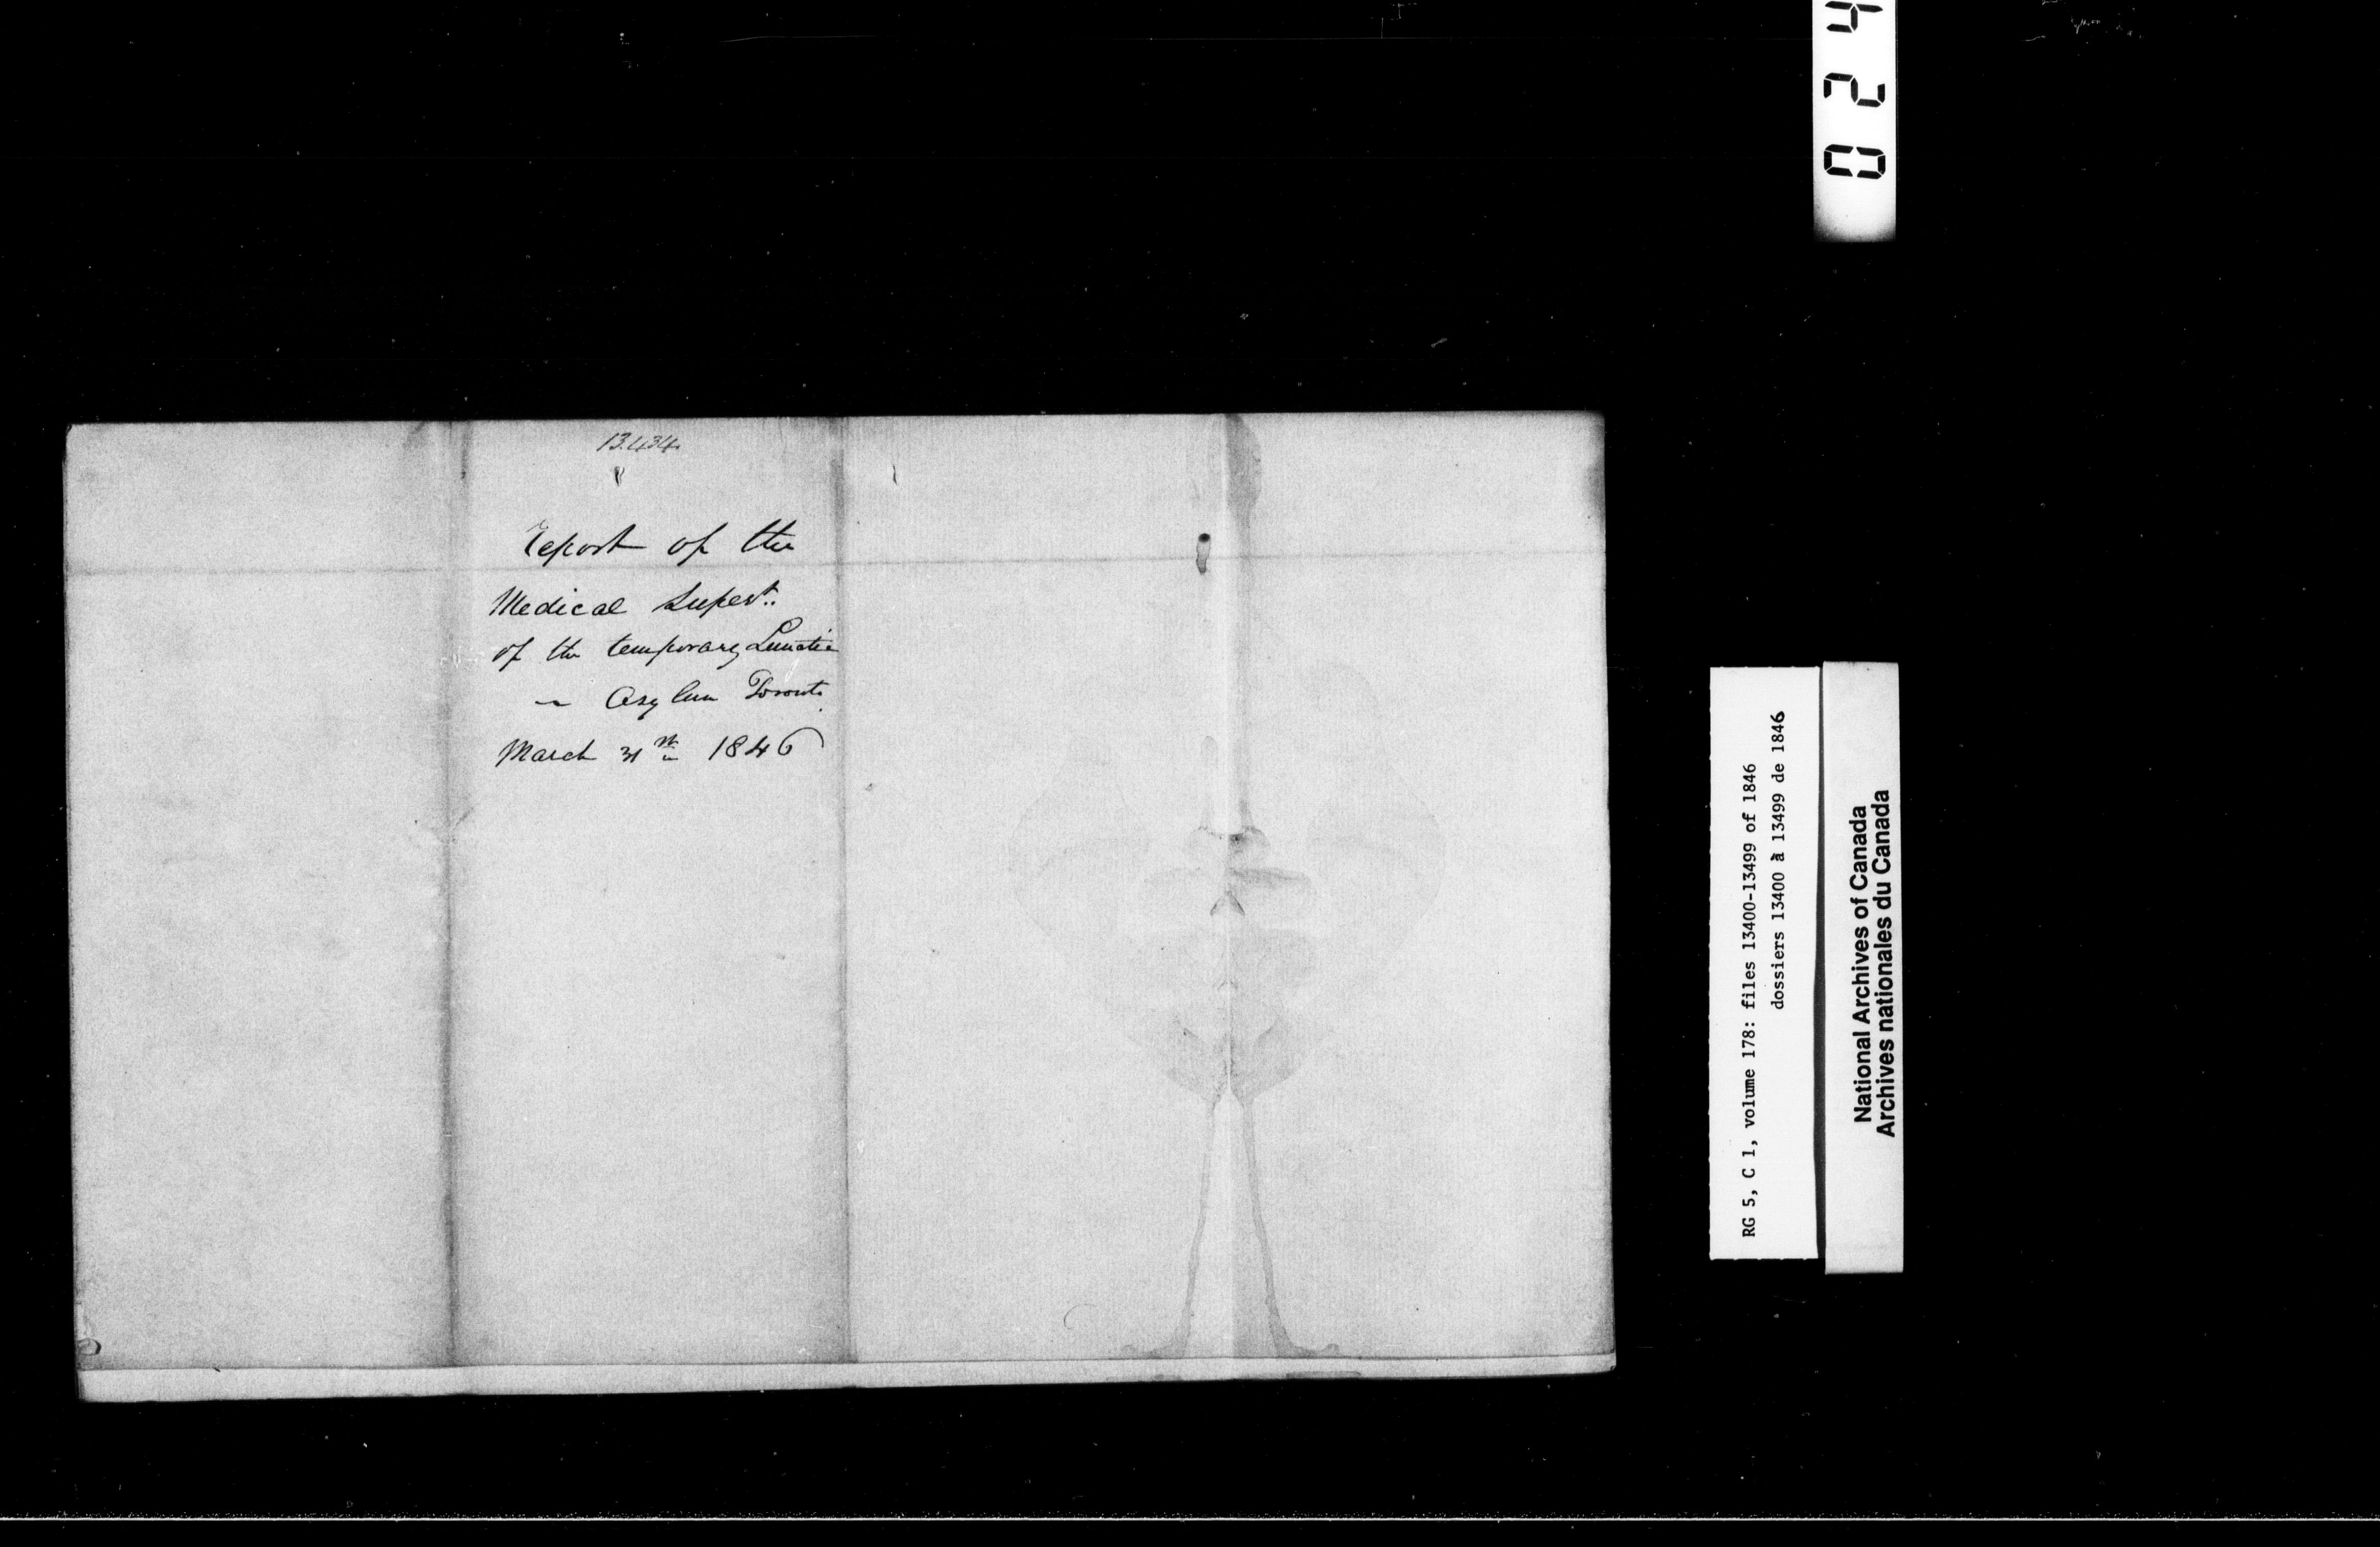 13.434.
Report of the
Medical Supert.
of the temporary Lunatic
~ Asylum Toronto.
March 31st 1846
RG 5, C 1, volume 178: files 13400-13499 of 1846
dossiers 13400 à 13499 de 1846
National Archives of Canada
Archives nationales du Canada
024